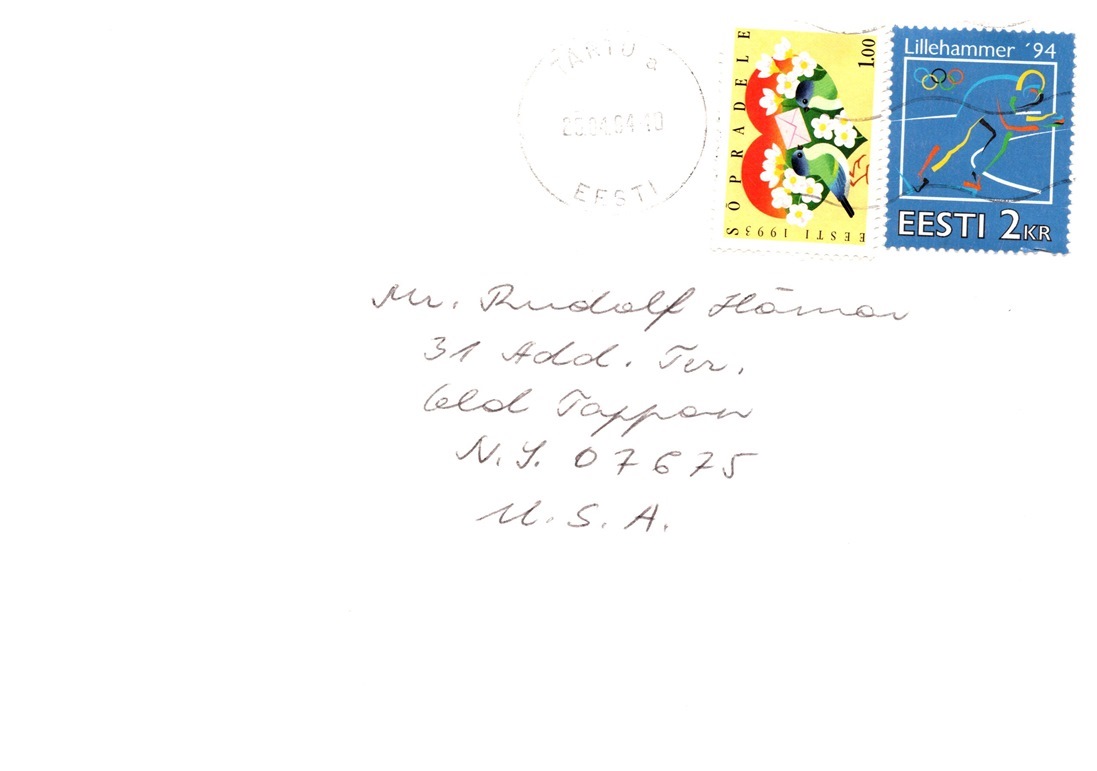 TARTU a
25.04.94-10
EESTI
SÕPRADELE
1.00
EESTI 1993
Lillehammer ´94
EESTI 2KR
Mr. Rudolf Hämar
31 Add. Ter.
Old Tappan
N.Y. 07675
U.S.A.